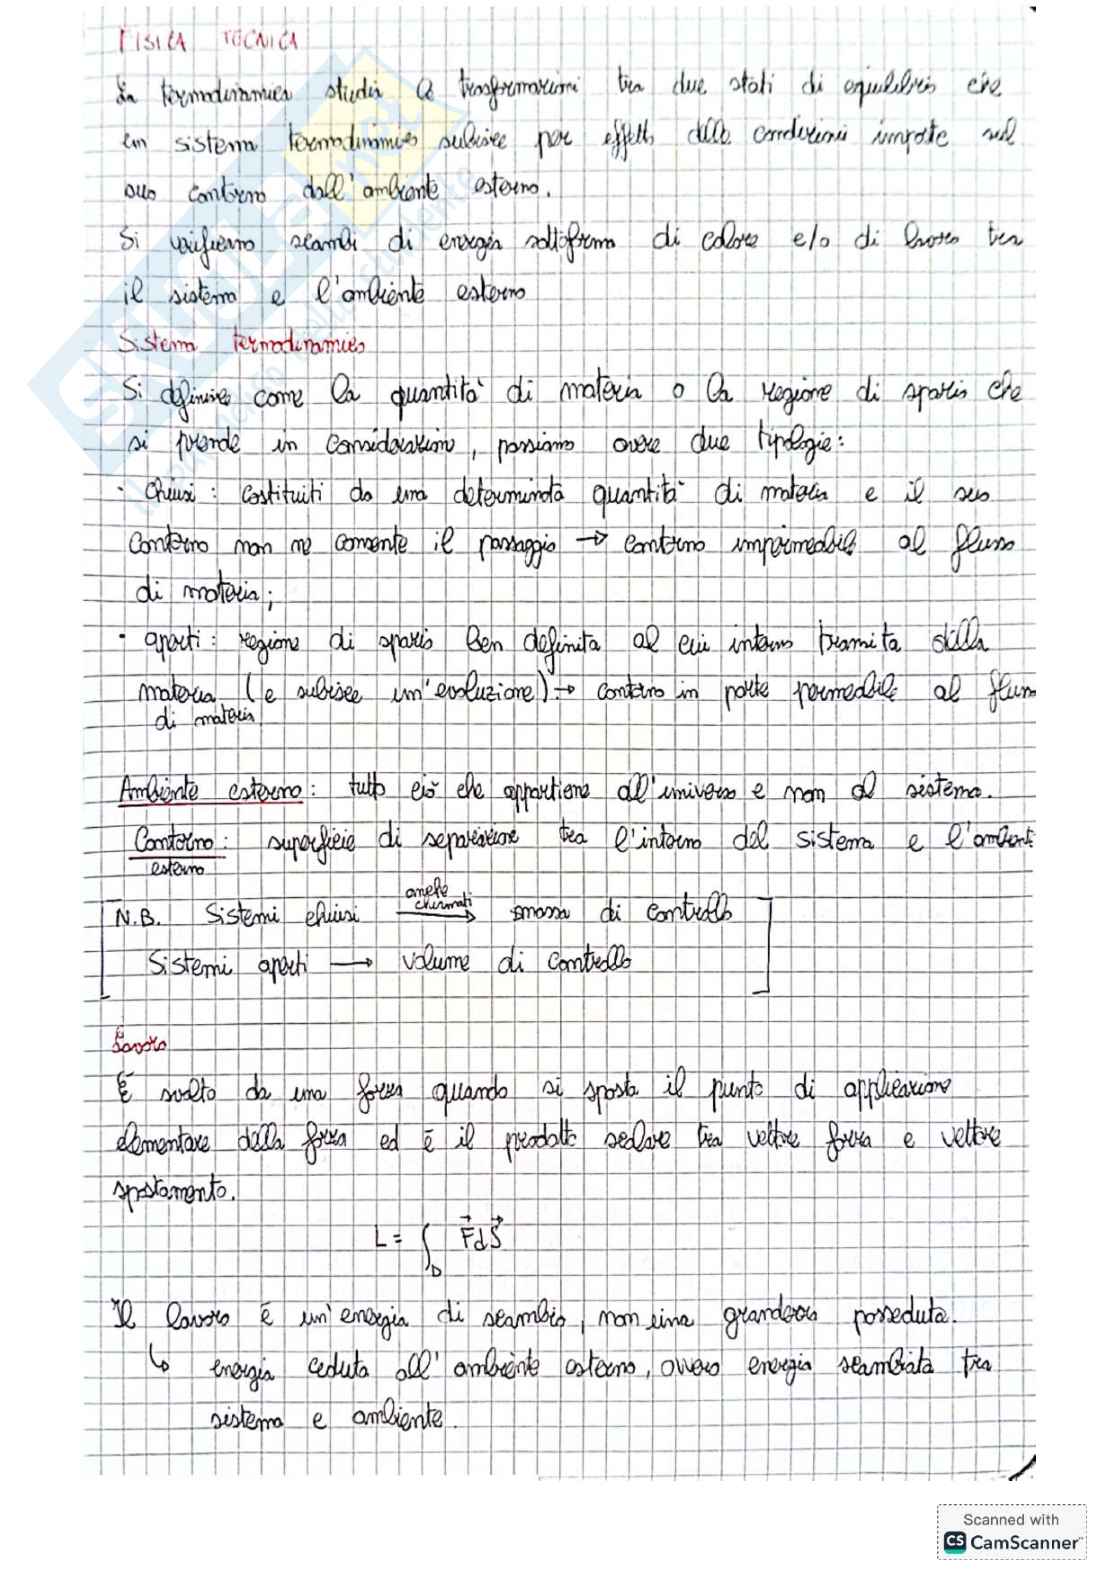 FISICA TECNICA
La termodinamica studia le trasformazioni tra due stati di equilibrio che
un sistema termodinamico subisce per effetto delle condizioni imposte sul
suo contorno dall'ambiente esterno.
Si verificano scambi di energia sottoforma di calore e/o di lavoro tra
il sistema e l'ambiente esterno
Sistema termodinamico
Si definisce come la quantità di materia o la regione di spazio che
si prende in considerazione, possiamo avere due tipologie:
· Chiusi: costituiti da una determinata quantità di materia e il suo
contorno non ne consente il passaggio → contorno impermeabile al flusso
di materia;
· aperti: regione di spazio ben definita al cui interno transita della
materia (e subisce un'evoluzione) → contorno in parte permeabile al flusso
di materia
Ambiente esterno: tutto ciò che appartiene all'universo e non al sistema.
Contorno: superficie di separazione tra l'interno del sistema e l'ambiente
esterno
N.B. Sistemi chiusi anche chiamati → massa di controllo
Sistemi aperti → volume di controllo
Lavoro
È svolto da una forza quando si sposta il punto di applicazione
elementare della forza ed è il prodotto scalare tra vettore forza e vettore
spostamento.
L = ∫_D F⃗ dS⃗
Il lavoro è un'energia di scambio, non una grandezza posseduta.
↳ energia ceduta all'ambiente esterno, ovvero energia scambiata tra
sistema e ambiente.
Scanned with
CS CamScanner